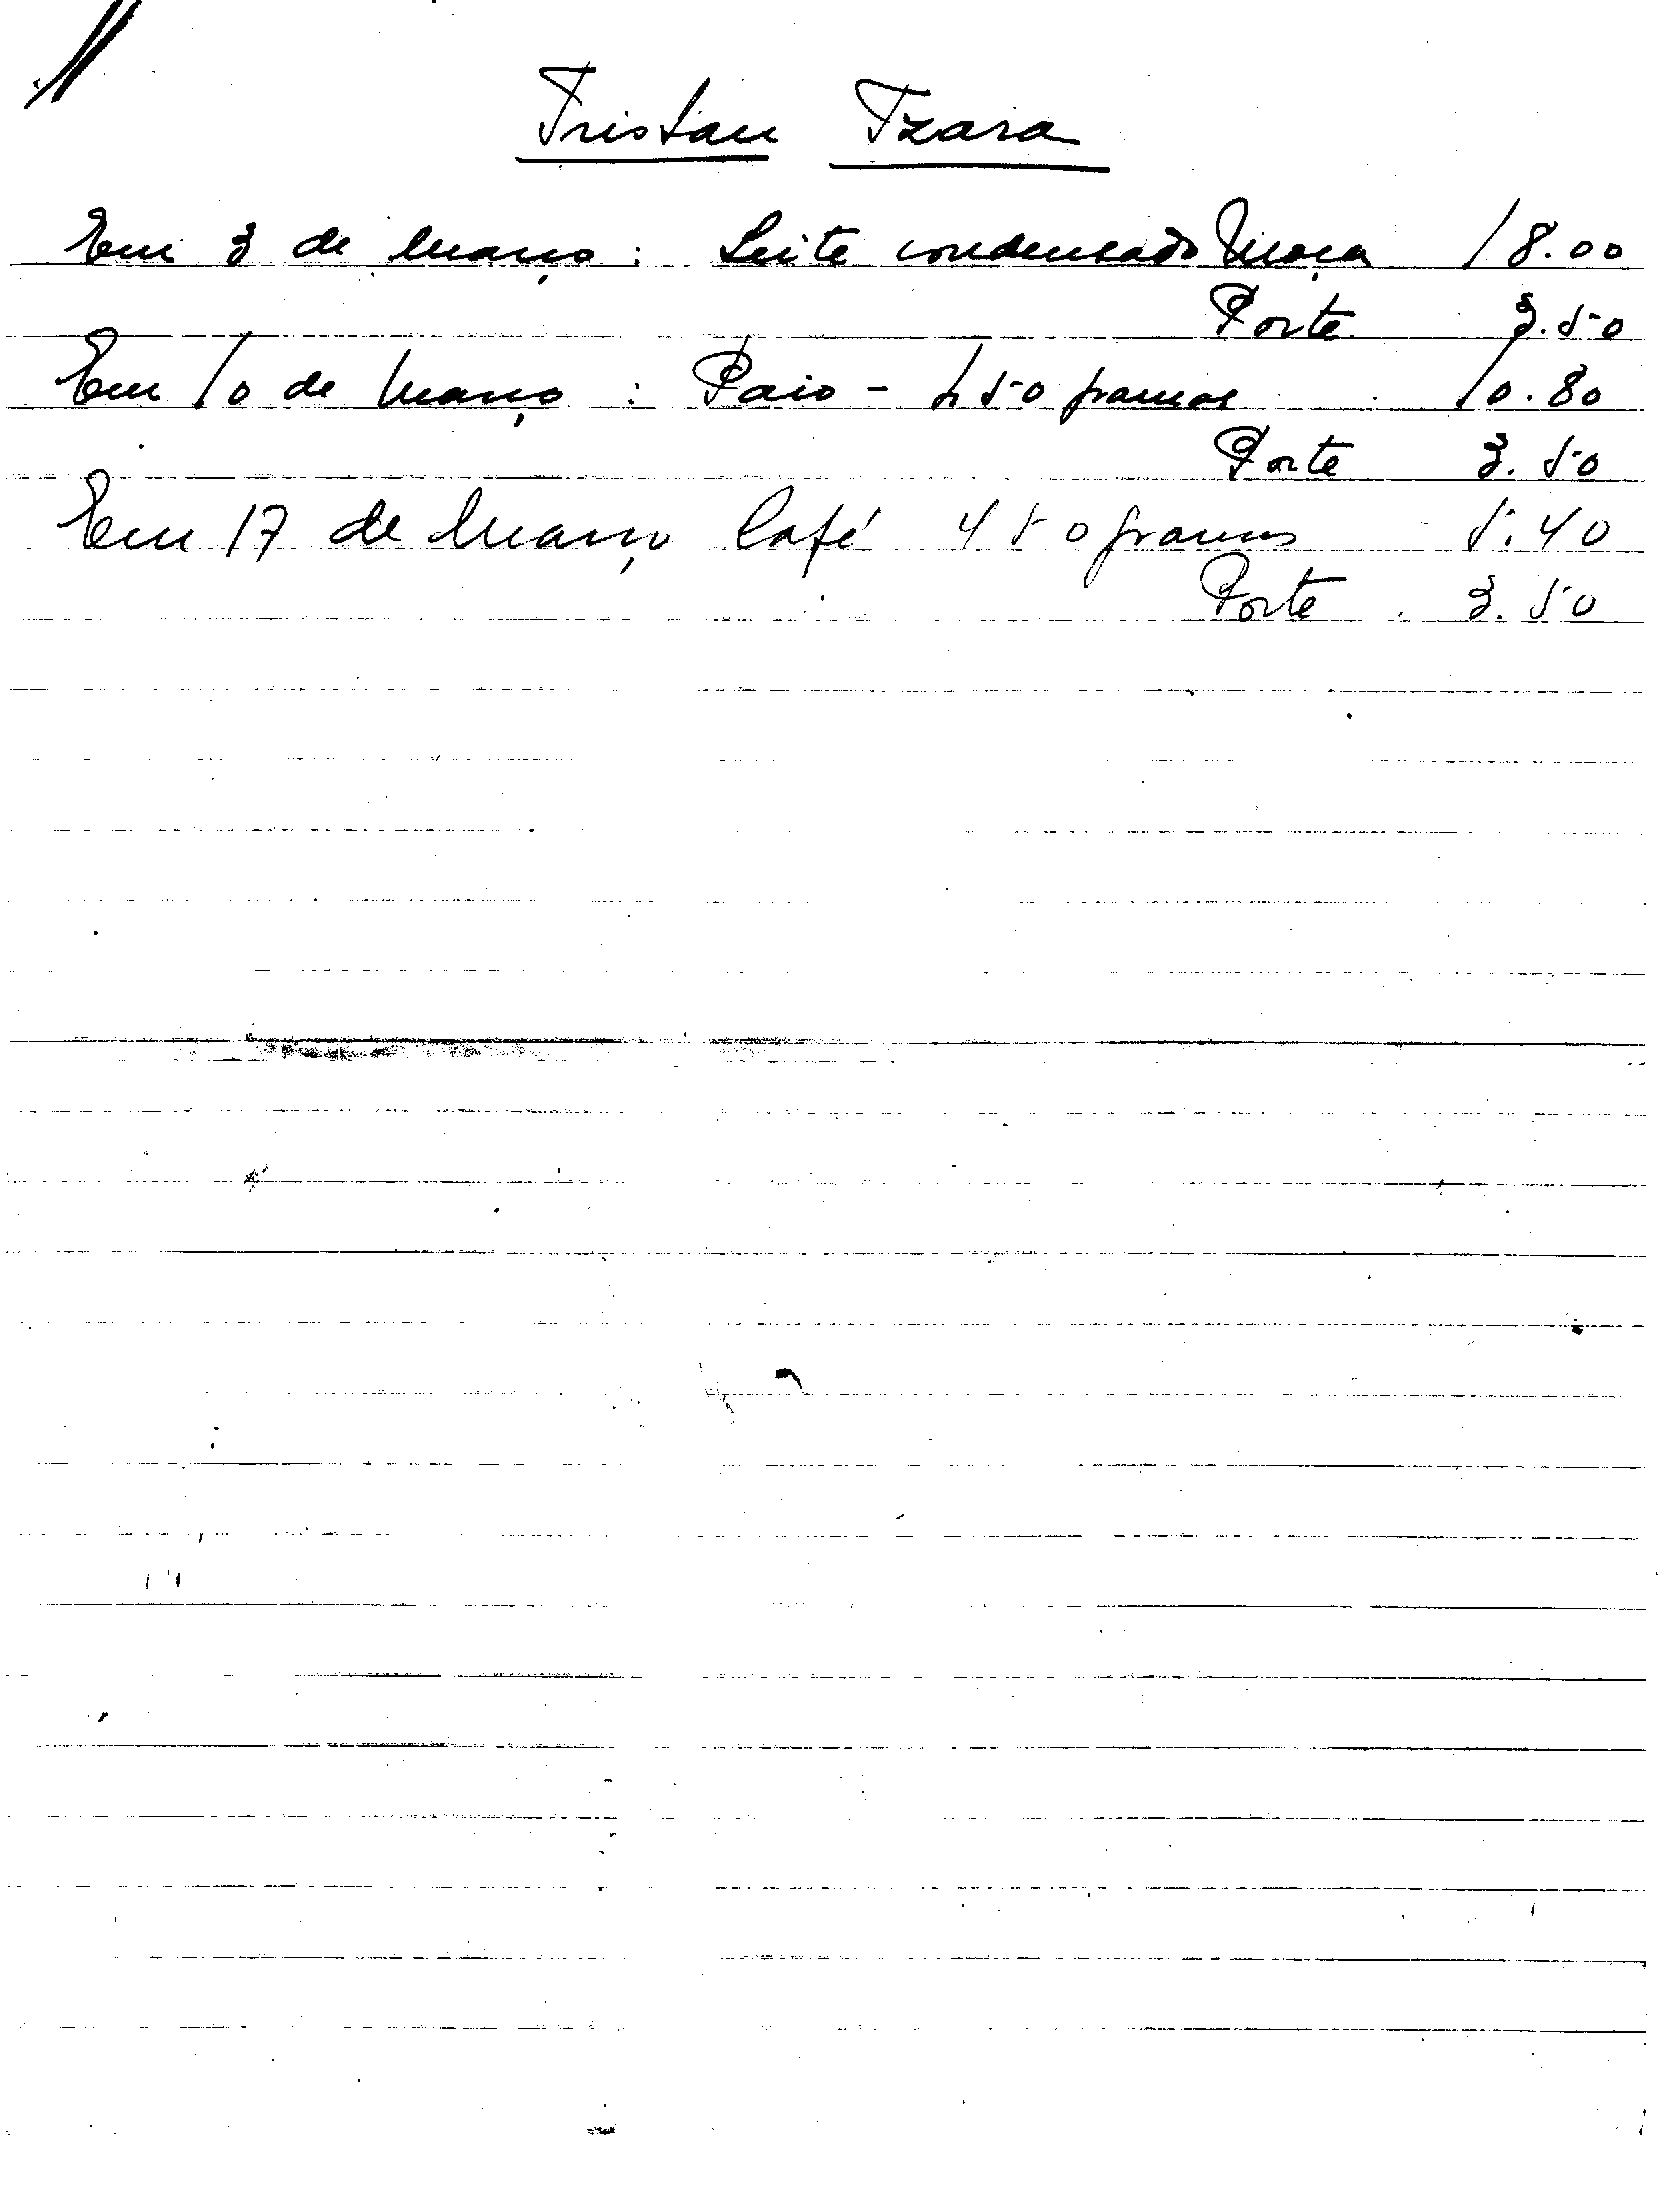 Tristan Tzara
Em 3 de março : Leite condensado Moça 18.00
Porte 3.50
Em 10 de março : Paio - 450 gramas 10.80
Porte 3.50
Em 17 de março Café 450 gramas 5.40
Porte 3.50